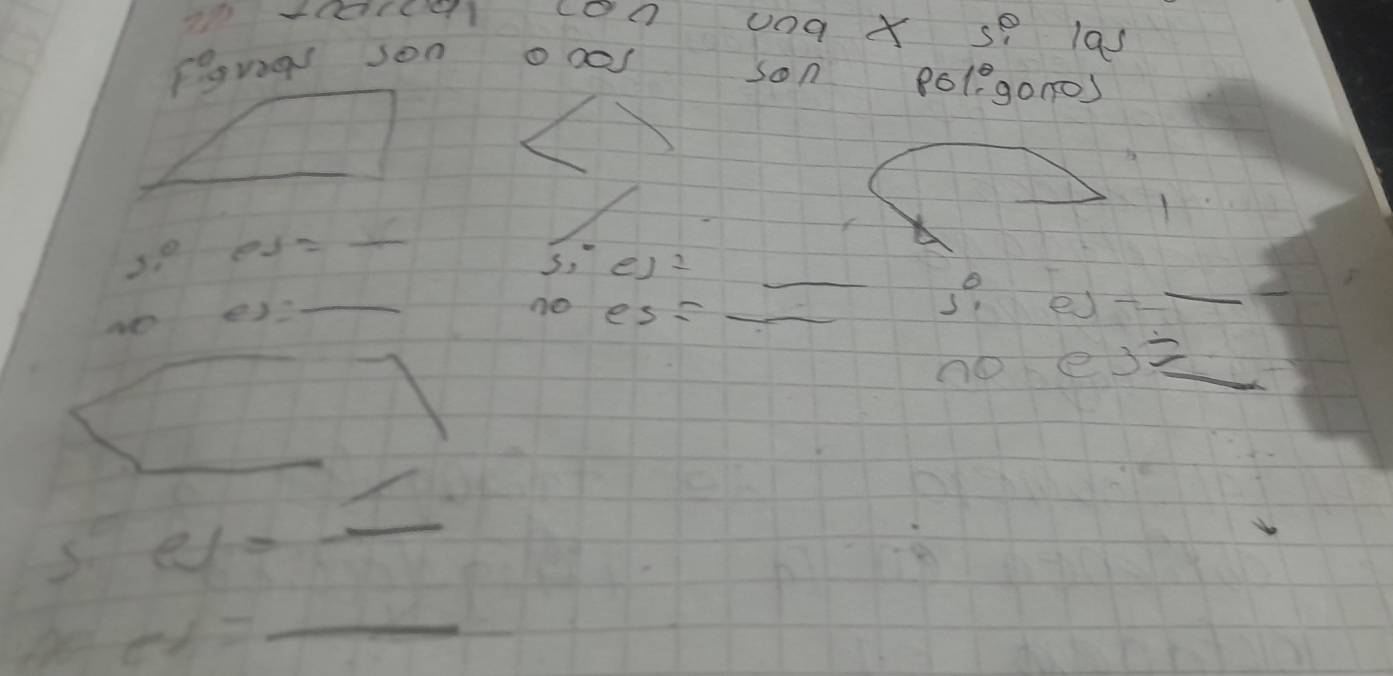 con una x si las
figuras son o nos son poligonos
si es = —
no es = ___
si es =
___
no es = ___
si es = ___
no es = ___
si es = ___
no es = ___